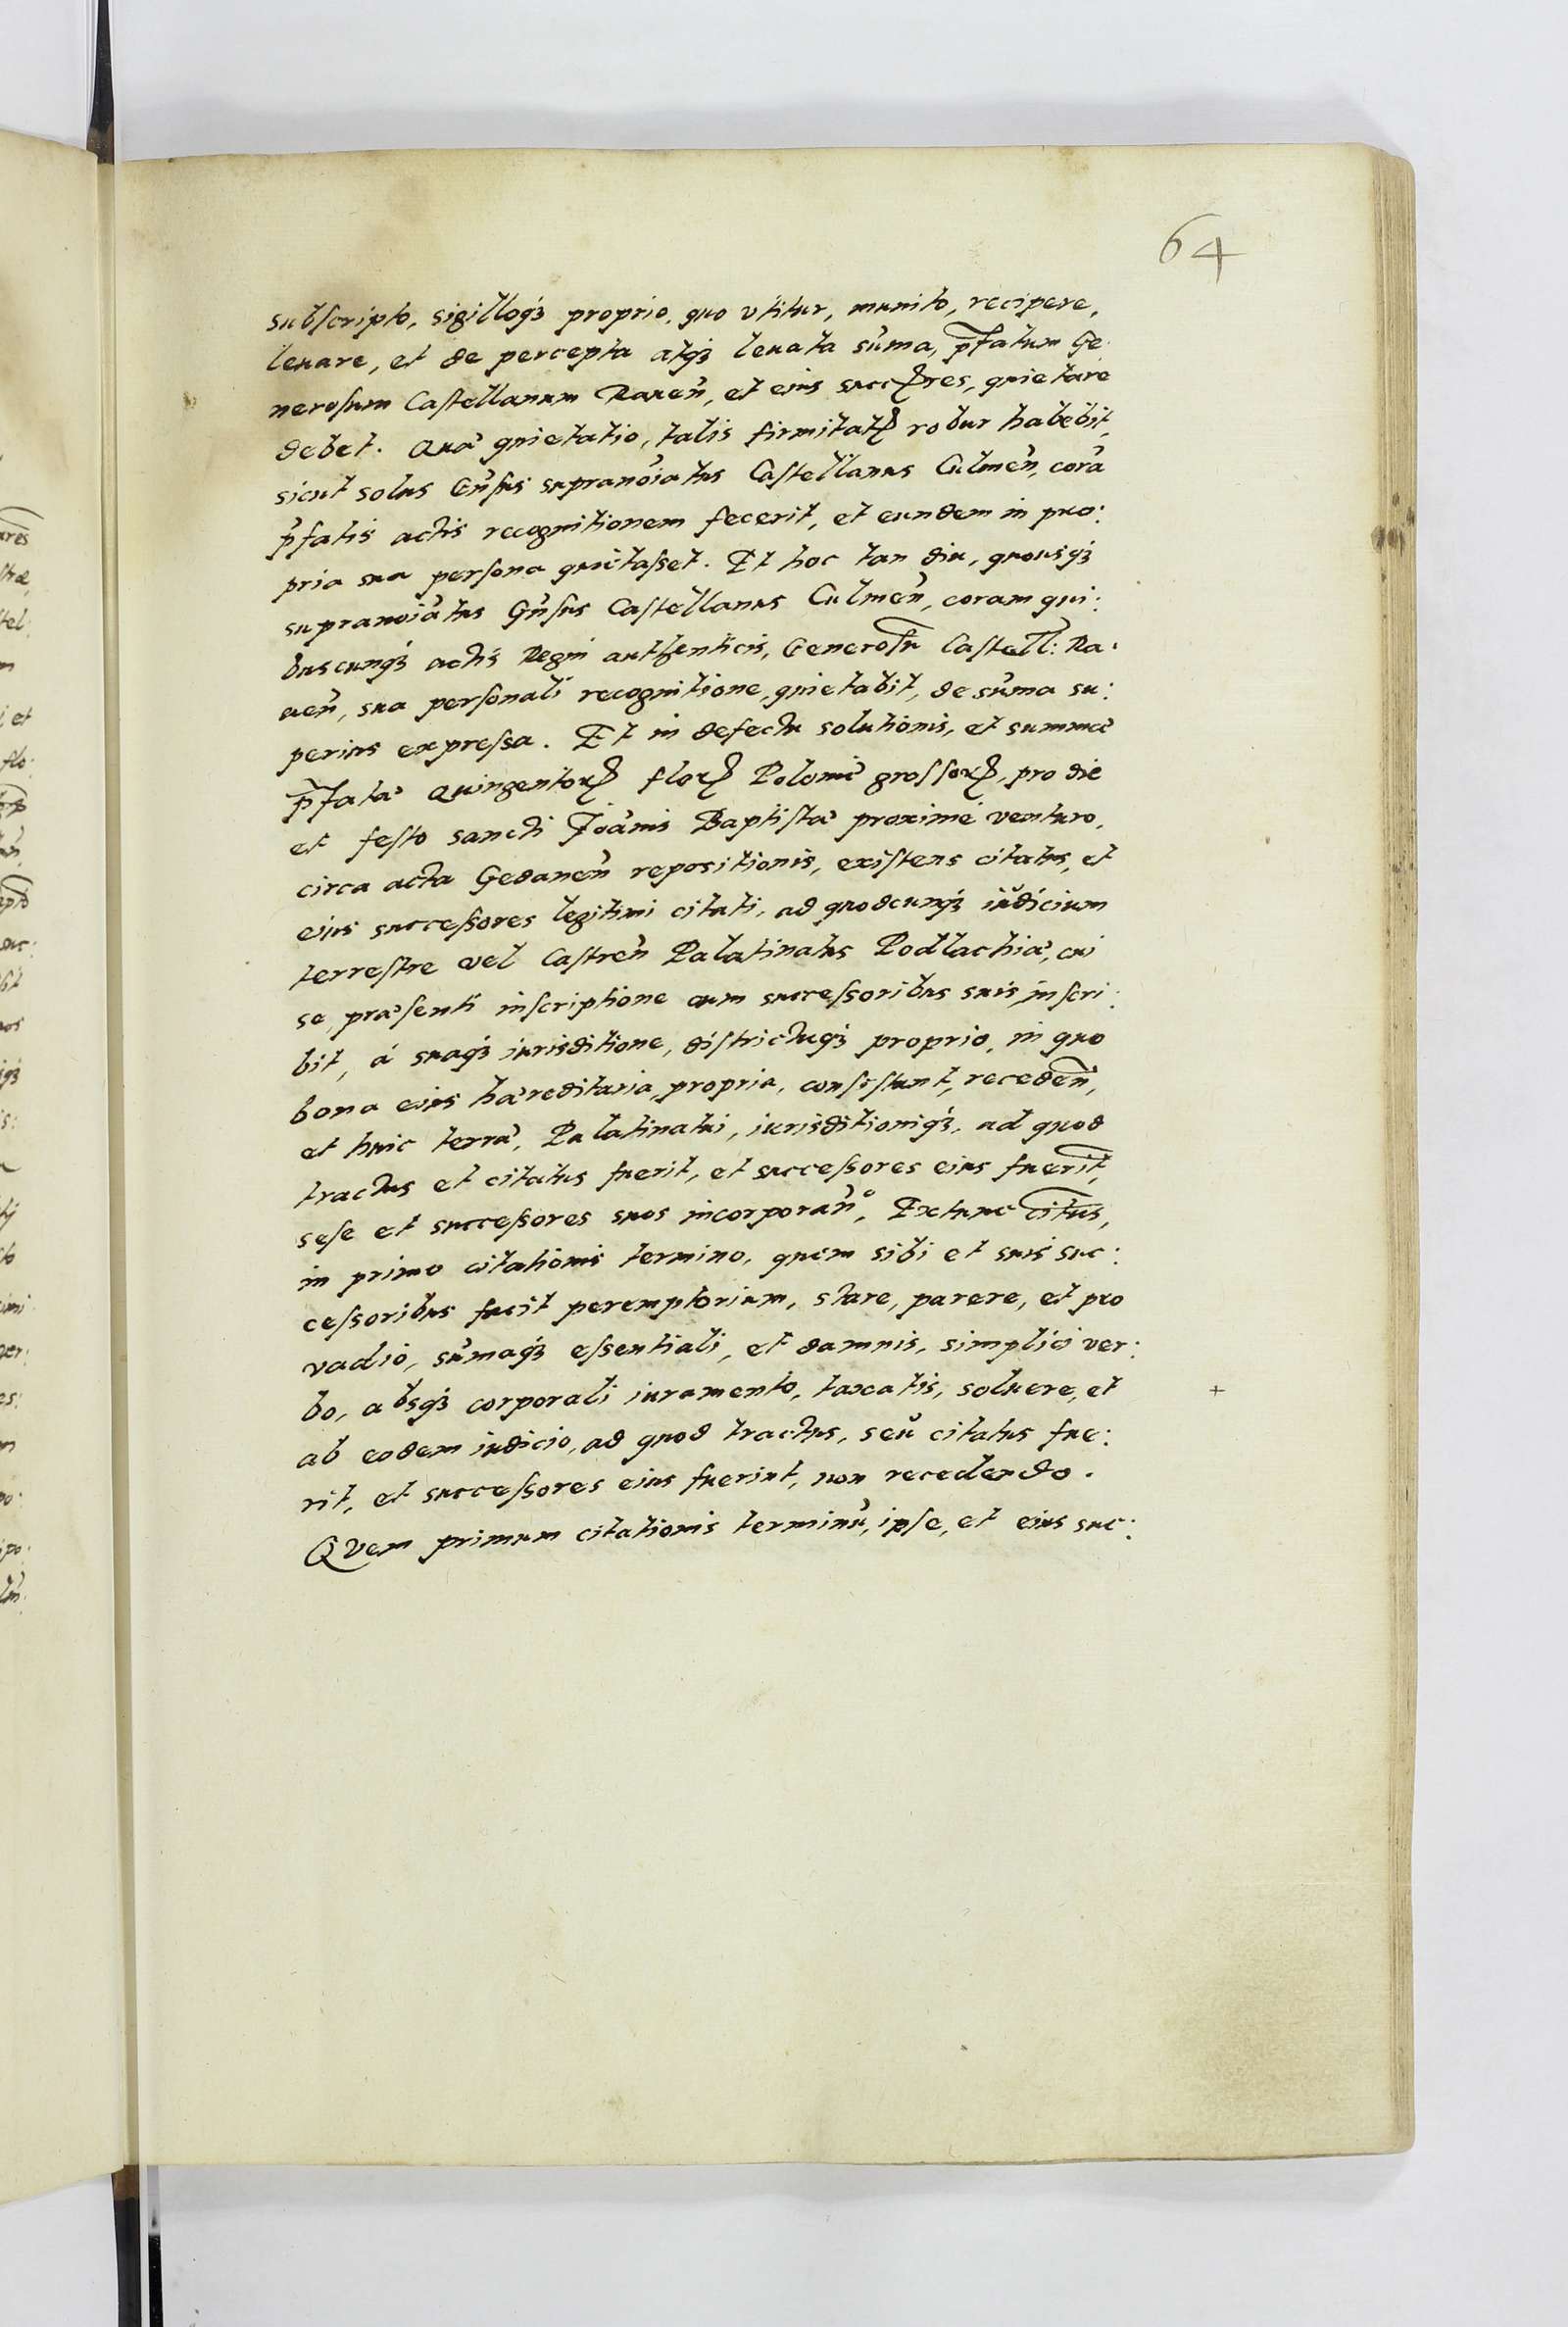 64
subscripto, sigilloqꝫ proprio, quo vtitur, munito, recipere,
leuare, et de percepta atqꝫ leuata sūma, p̄fatum Ge
nerosum Castellanum Rauen̄, et eius succꝭres, quietare
debet. Quæ quietatio, talis firmitatꝭ robur habebit,
sicut solus Gn̄sus supranoīatus Castellanus Culmen̄, corā
p̄fatis actis recognitionem fecerit, et eundem in pro:
pria sua persona quietasset. Et hoc tan diu, quousqꝫ
supranoīatus Gn̄sus Castellanus Culmen̄, coram qui:
buscunqꝫ actis Regni authenticis, Generosū Castell: Ra:
uen̄, sua personali recognitione, quietabit, de sūma su:
perius expressa. Et in defectu solutionis, et summæ
p̄fatæ quingentoꝝ floꝝ Poloniæ grossoꝝ, pro die
et festo sancti Joānis Baptistæ proximè venturo,
circa acta Gedanen̄ repositionis, existens citatus, et
eius successores legitimi citati, ad quodcunqꝫ iudicium
terrestre vel Castren̄ Palatinatus Podlachiæ, cui
se præsenti inscriptione cum successoribus suis inscri:
bit, à suaqꝫ iurisditione, districtuqꝫ proprio, in quo
bona eius hæreditaria, propria, consistunt, receden̄,
et huic terræ, Palatinatui, iurisditioniqꝫ, ad quod
tractus et citatus fuerit, et successores eius fuerīt,
sese et successores suos incorporan̄º, Extunc citus,
in primo citationis termino, quem sibi et suis suc:
cessoribus facit peremptorium, stare, parere, et pro
vadio, sūmaqꝫ essentiali, et damnis, simplici ver:
bo, absqꝫ corporali iuramento, taxatis, soluere, et
ab eodem iudicio, ad quod tractus, seu citatus fue:
rit, et successores eius fuerint, non recedendo.
Quem primum citationis terminū, ipse, et eius suc:
+